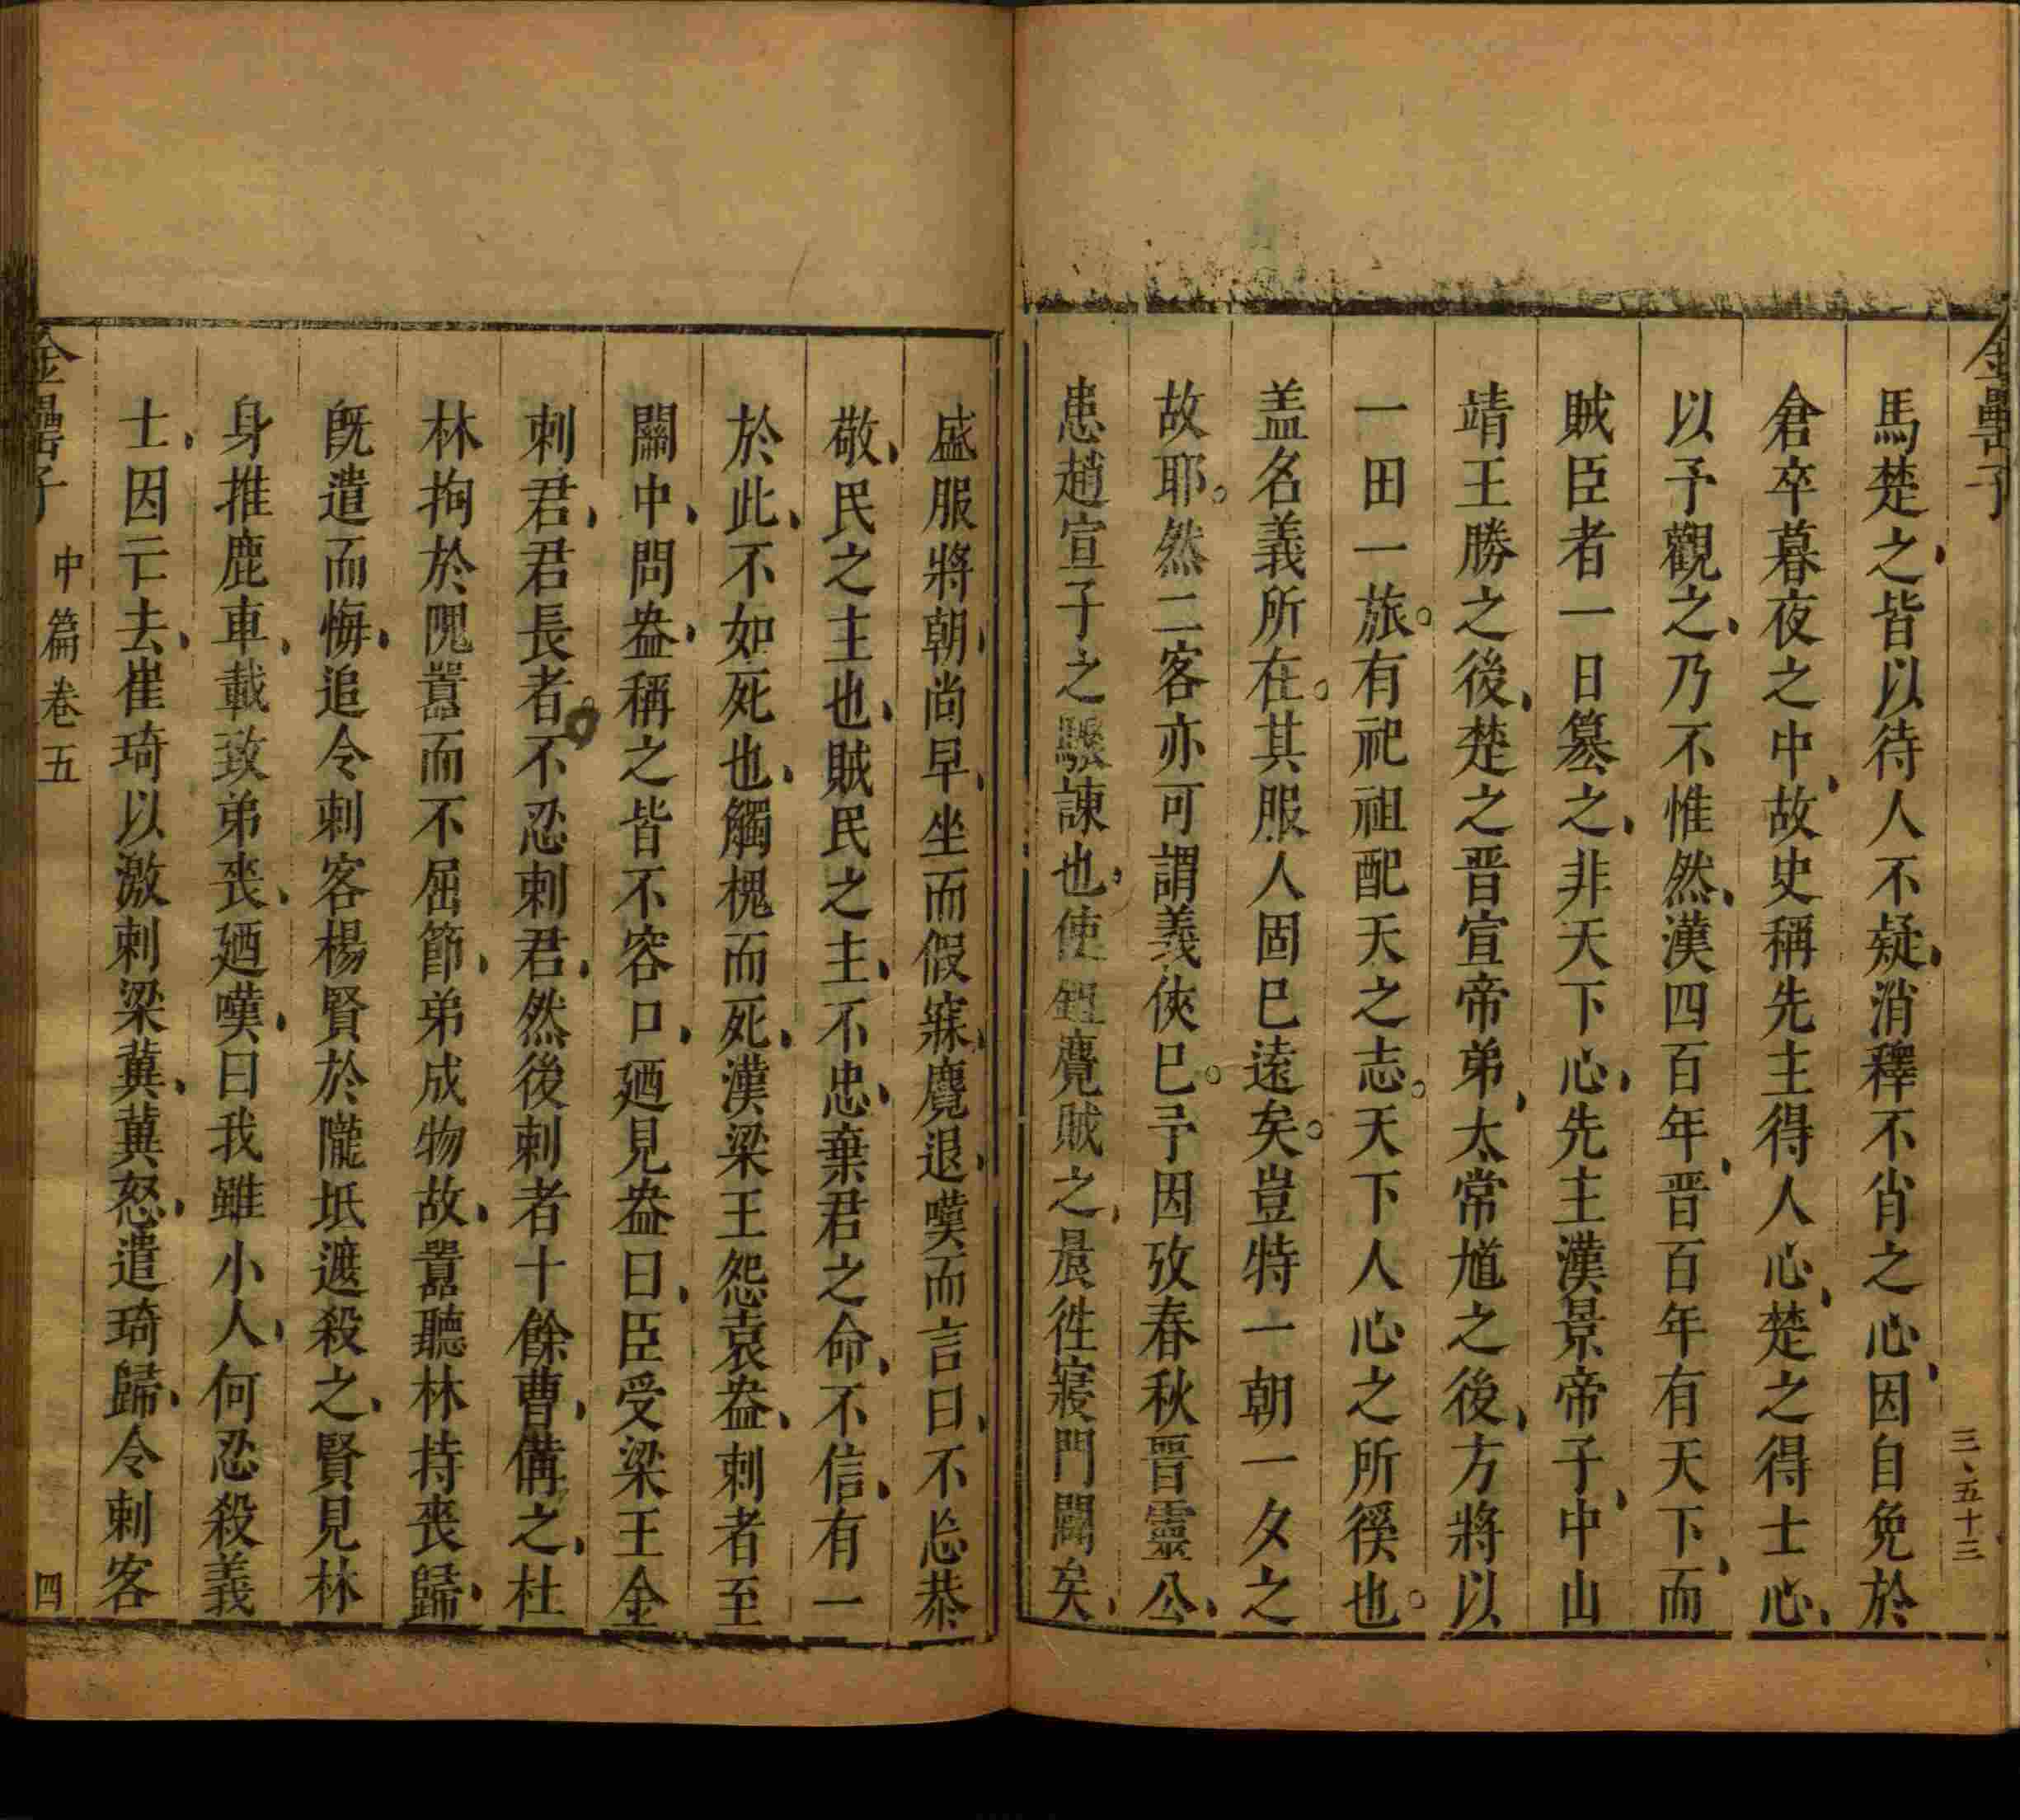 金罍子
三、五十三
馬楚之皆以待人不疑消釋不肖之心因自免於
倉卒暮夜之中故史稱先主得人心楚之得士心
以予觀之乃不惟然漢四百年晋百年有天下而
賊臣者一日篡之非天下心先主漢景帝子中山
靖王勝之後楚之晋宣帝弟太常馗之後方將以
一田一旅。有祀祖配天之志。天下人心之所徯也。
盖名義所在。其服人固已遠矣。豈特一朝一夕之
故耶。然二客亦可謂義俠已。予因攷春秋晋靈公
患趙宣子之驟諫也使鉏麑賊之晨徃寢門闢矣
盛服將朝尚早坐而假寐麑退嘆而言曰不忘恭
敬民之主也賊民之主不忠棄君之命不信有一
於此不如死也觸槐而死漢梁王怨袁盎刺者至
關中問盎稱之皆不容口廼見盎曰臣受梁王金
刺君君長者不忍刺君然後刺者十餘曹備之杜
林拘於隗囂而不屈節弟成物故囂聽林持喪歸
旣遣而悔追令刺客楊賢於隴坻遮殺之賢見林
身推鹿車載致弟喪廼嘆曰我雖小人何忍殺義
士因亡去崔琦以激刺梁冀冀怒遣琦歸令刺客
金罍子 中篇卷五 四